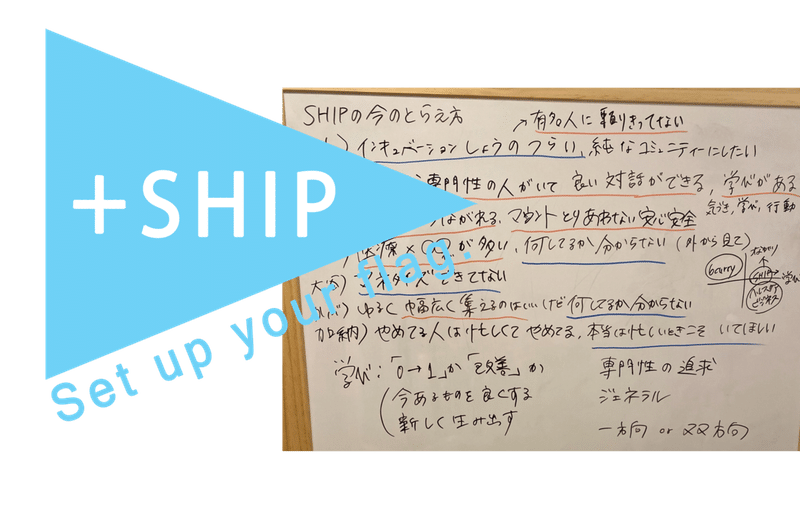 +SHIP
Set up your flag.
SHIPの今のとらえ方
↗有名人に頼りきってない
インキュベーションしようのつらい、純なコミュニティーにしたい
専門性の人がいて 良い対話ができる, 学びがある
気づき, 学び, 行動
ながれる, マウントとりあわない 安心安全
医療×〇〇が多い, 何してるか分からない (外から見て)
マネタイズできてない
ゆるく 幅広く集えるのはいいけど 何してるか分からない
加納) やめてる人は忙しくてやめてる, 本当は忙しいときこそ いてほしい
つながり
6curry
SHIP
学び
ヘルスケア
ビジネス
学び:「0→1」か「改善」か
今あるものを良くする
新しく生み出す
専門性の追求
ジェネラル
一方向 or 双方向